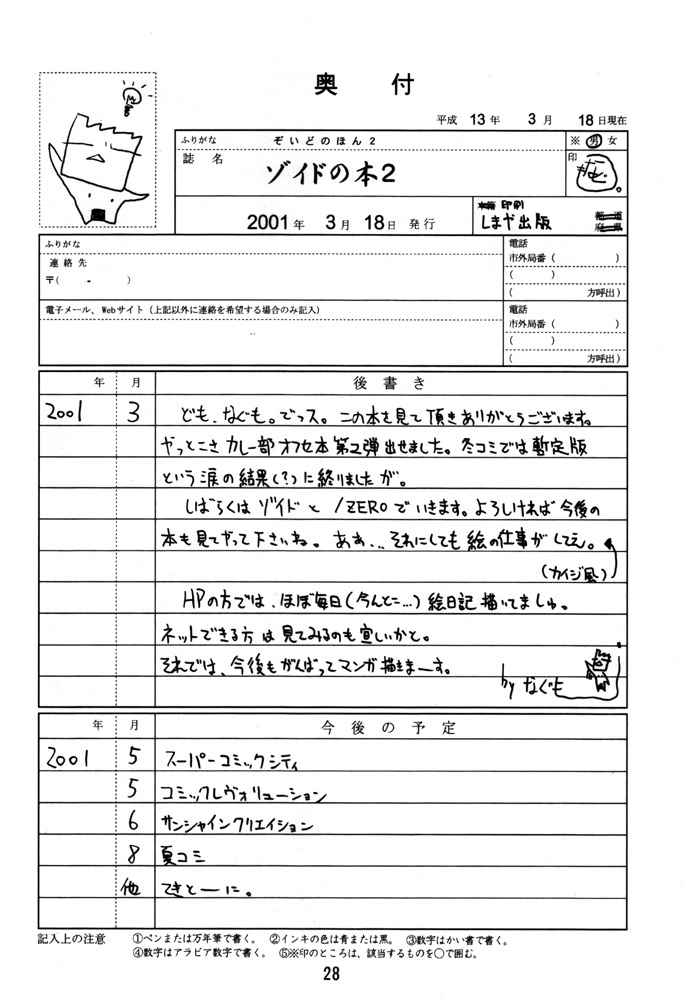 奥付
平成 13年 3月 18日現在
ふりがな ぞいどのほん2
※ 男 女
誌名 ゾイドの本2
印
2001年 3月 18日 発行
印刷
しまや出版
都道
府県
ふりがな
連絡先
〒( - )
電話
市外局番 ( )
( )
( 方呼出)
電子メール、Webサイト (上記以外に連絡を希望する場合のみ記入)
電話
市外局番 ( )
( )
( 方呼出)
年 月 後書き
2001 3 ども、なぐも。でっス。この本を見て頂きありがとうございます。
やっとこさカレー部オフセ本第2弾出せました。冬コミでは暫定版
という涙の結果(?)に終りましたが。
しばらくは ゾイド と /ZEROでいきます。よろしければ今後の
本も見てやって下さいね。あぁ...それにしても絵の仕事がしてえ。
(カイジ風)
HPの方では、ほぼ毎日(今んとこ...)絵日記描いてましゅ。
ネットできる方は見てみるのも宜しいかと。
それでは、今後もがんばってマンガ描きまーす。
by なぐも
年 月 今後の予定
2001 5 スーパーコミックシティ
5 コミックレヴォリューション
6 サンシャインクリエイション
8 夏コミ
他 てきとーに。
記入上の注意 ①ペンまたは万年筆で書く。 ②インキの色は青または黒。 ③数字はかい書で書く。
④数字はアラビア数字で書く。 ⑤※印のところは、該当するものを○で囲む。
28